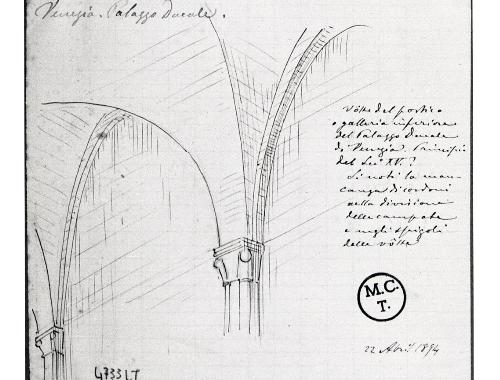 Venezia. Palazzo Ducale.
Vôlte del portico
o galleria inferiore
del Palazzo Ducale
di Venezia. Principii
del Sec. XV.?
Si noti la man-
canza di cordoni
nella divisione
delle campate
e negli spigoli
delle vôlte
M.C.
T.
22 Abril 1894
4733 LT